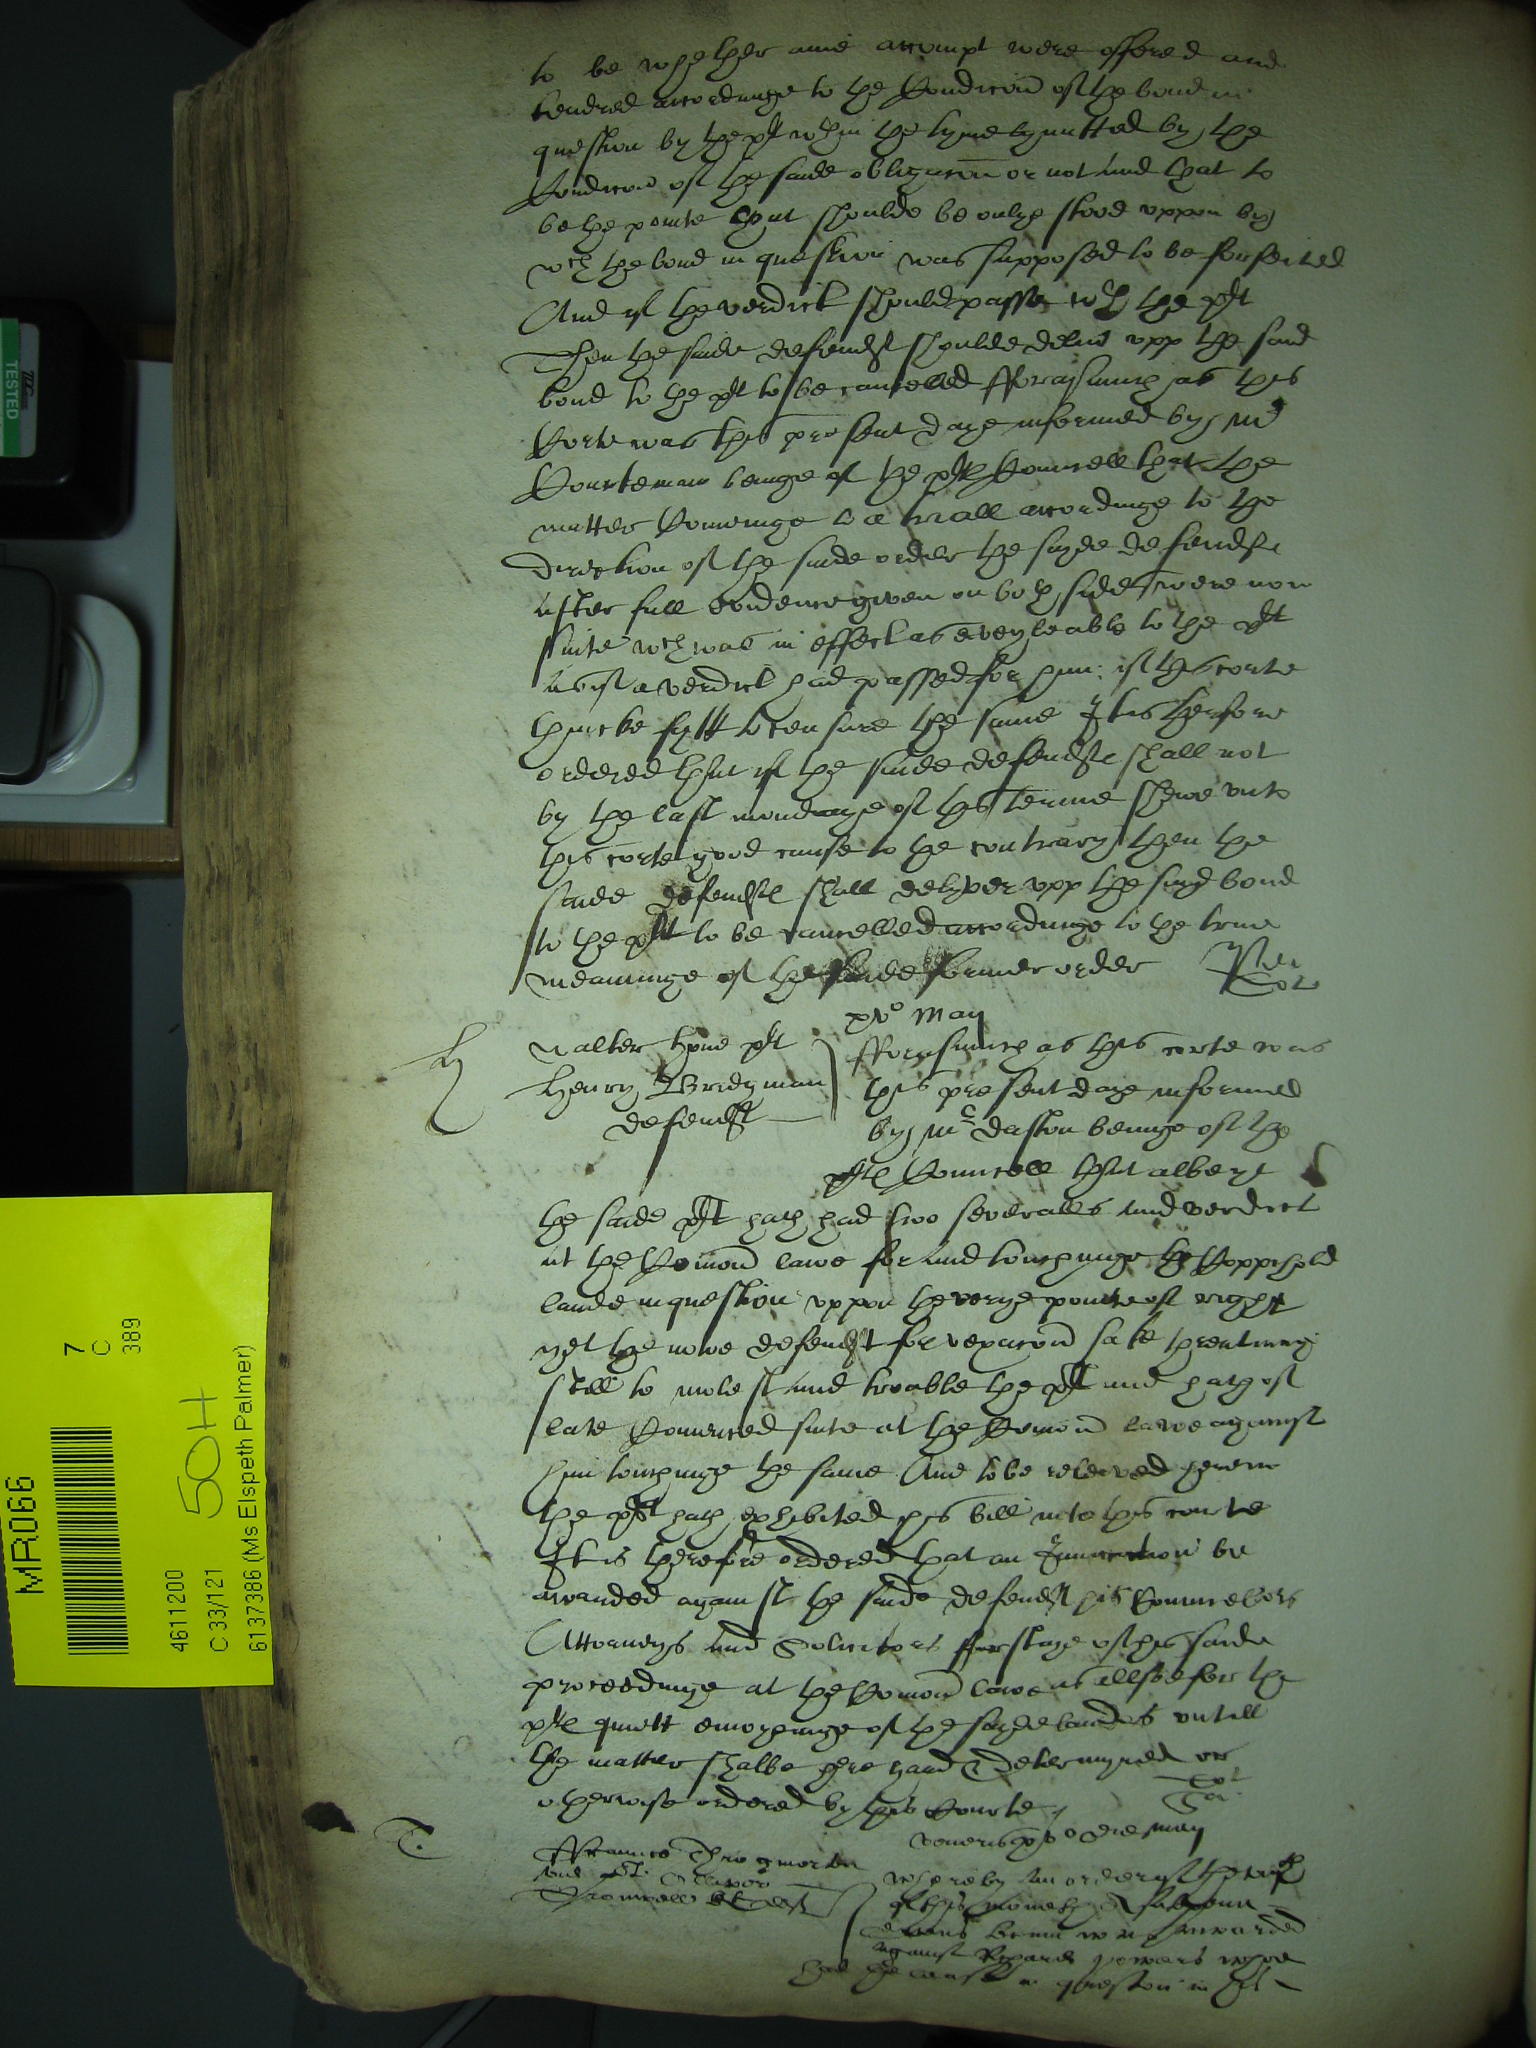 to be whether anie attempt were offered and
tendred accordinge to the Condicion of the bond in
question by the plt wthin the tyme lymitted by the
Condicon of the saide obligacion or not And that to
be the pointe that shoulde be onlye stood uppon by
wch the bond in question was supposed to be forfeited
And if the verdict should passe wth the plt
Then the saide defendt shoulde deliver upp the said
bond to the plt to be cancelled fforasmuch as this
Corte was this present daye informed by Mr
Courteman beinge of the plts Councell that the
matter Cominge to a triall accordinge to the
direction of the saide order the sayde defendte
after full evidence given on both sides were non
suite wch was in effect as aveyleable to the plt
as if a verdict had passed for him if this corte
thincke fytt to censure the same It is therfore
ordered that if the saide defendte shall not
by the last mondaye of this terme shewe unto
this corte good cause to the contrary then the
saide defendte shall delyver upp the sayd bond
to the plt to be cancelled accordinge to the true
meaninge of the saide former order
pro May
H
Walter hone plt
Henry Bridgman
defendt
fforasmuch as this corte was
this present daye informed
by Mr daston beinge of the
plts Councell that albeyt
the saide plt hath had two severalls and verdict
at the Comon lawe for and touchinge the Coppihold
lande in question uppon the verye pointe of right
yet the nowe defendt for vexacon sake threatninge
still to molest and trooble the plt and hath of
late Comenced suite at the Comon lawe against
him touchinge the same And to be releeved herein
the plt hath exhibited his bill into this courte
It is therefore ordered that an Iniunction be
awarded against the saide defendt his Councellors
Attorneys and Solicitors for staye of his saide
proceedinge at the Comon lawe as allsoe for the
plts quiett enioyeinge of the sayde landes untill
the matter shalbe here heard & determyned or
otherwise ordered by this Courte
T.
ffrauncis Throgmorton
and plt Oliver
Cromwell deft
veneris pro die May
whereby an order of the
of this moneth A subpena
was awarded
against Rychard powers whoe
had the cause in question in his
TESTED
MR066
7
C
389
50H
4611200
C 33/121
6137386 (Ms Elspeth Palmer)